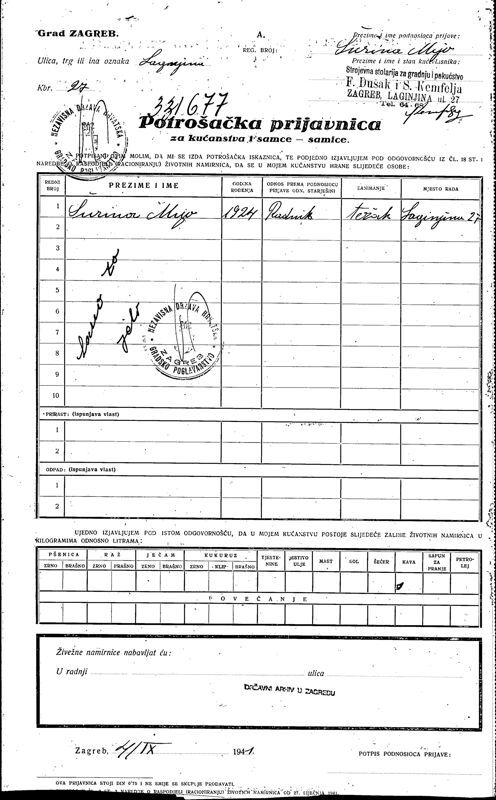 Grad ZAGREB.
A.
Prezime i ime podnosioca prijave:
REG. BROJ:
Šurina Mijo
Ulica, trg ili ina oznaka Laginjina
Prezime i ime i stan kućevlasnika:
Strojevna stolarija za gradnju i pokućstvo
F. Dušak i S. Kemfelja
ZAGREB, LAGINJINA ul. 27
Tel. 64
Kbr. 27
331677
Potrošačka prijavnica
za kućanstva i samce — samice.
POTPISANI OVIM MOLIM, DA MI SE IZDA POTROŠAČKA ISKAZNICA, TE PODJEDNO IZJAVLJUJEM POD ODGOVORNOŠĆU IZ ČL. 18 ST. 1
NAREDBE O RASPODJELI (RACIONIRANJU) ŽIVOTNIH NAMIRNICA, DA SE U MOJEM KUĆANSTVU HRANE SLIJEDEĆE OSOBE:
REDNI BROJ PREZIME I IME GODINA ROĐENJA ODNOS PREMA PODNOSIOCU PRIJAVE ODN. STARJEŠINI ZANIMANJE MJESTO RADA
1 Šurina Mijo 1924 Radnik težak Laginjina 27
2
3
4
5
6
7
8
9
10
NEZAVISNA DRŽAVA HRVATSKA
GRADSKO POGLAVARSTVO
ZAGREB
PRIRAST: (ispunjava vlast)
1
2
ODPAD: (ispunjava vlast)
1
2
UJEDNO IZJAVLJUJEM POD ISTOM ODGOVORNOŠĆU, DA U MOJEM KUĆANSTVU POSTOJE SLIJEDEĆE ZALIHE ŽIVOTNIH NAMIRNICA U
KILOGRAMIMA ODNOSNO LITRAMA:
PŠENICA RAŽ JEČAM KUKURUZ TJESTENINE JESTIVO ULJE MAST SOL ŠEĆER KAVA SAPUN ZA PRANJE PETROLEJ
ZRNO BRAŠNO ZRNO BRAŠNO ZRNO BRAŠNO ZRNO KLIP BRAŠNO
POVEĆANJE
Živežne namirnice nabavljat ću:
U radnji ulica
DRŽAVNI ARHIV U ZAGREBU
Zagreb, 4/IX 1941.
POTPIS PODNOSIOCA PRIJAVE:
OVA PRIJAVNICA STOJI DIN 0.75 I NE SMIJE SE SKUPLJE PRODAVATI.